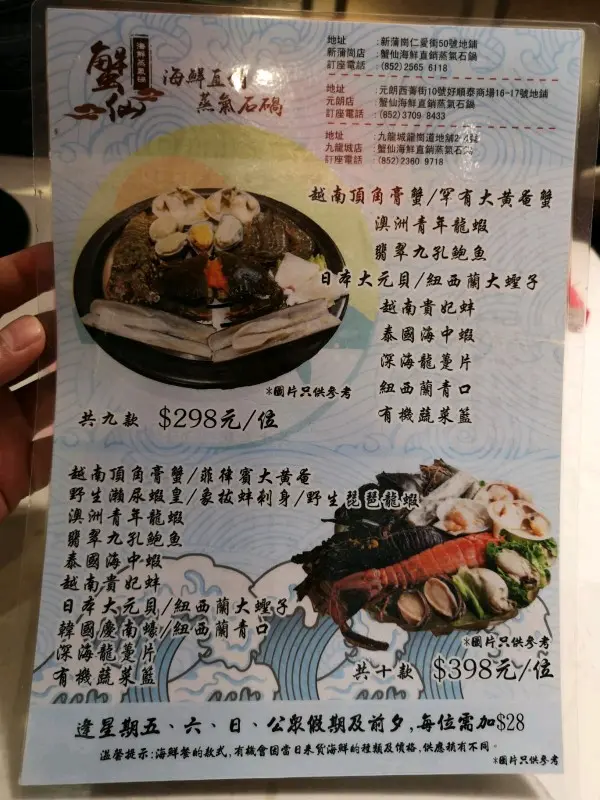 海鮮蒸氣鍋
蟹仙
海鮮直銷
蒸氣石鍋
地址 :新蒲崗仁愛街50號地鋪
新蒲崗店 :蟹仙海鮮直銷蒸氣石鍋
訂座電話 :(852)2565 6118
地址 :元朗西菁街10號好順泰商場16-17號地鋪
元朗店 :蟹仙海鮮直銷蒸氣石鍋
訂座電話 :(852)3709 8433
地址 :九龍城龍崗道地舖2
九龍城店 :蟹仙海鮮直銷蒸氣石
訂座電話 :(852)2360 9718
越南頂角膏蟹/罕有大黃奄蟹
澳洲青年龍蝦
翡翠九孔鮑魚
日本大元貝/紐西蘭大蟶子
越南貴妃蚌
泰國海中蝦
深海龍躉片
紐西蘭青口
有機蔬菜籃
*圖片只供參考
共九款 $298元/位
越南頂角膏蟹/菲律賓大黃奄
野生瀨尿蝦皇/象拔蚌刺身/野生琵琶龍蝦
澳洲青年龍蝦
翡翠九孔鮑魚
泰國海中蝦
越南貴妃蚌
日本大元貝/紐西蘭大蟶子
韓國慶南蠔/紐西蘭青口
深海龍躉片
有機蔬菜籃
*圖片只供參考
共十款 $398元/位
逢星期五、六、日、公眾假期及前夕,每位需加$28
溫馨提示:海鮮餐的款式,有機會因當日來貨海鮮的種類及價格,供應稍有不同。
*圖片只供參考